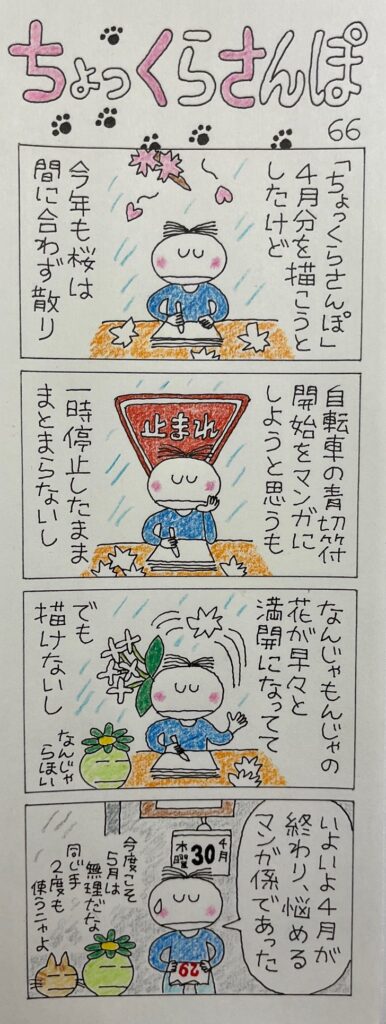 ちょっくらさんぽ
66
「ちょっくらさんぽ」
4月分を描こうと
したけど
今年も桜は
間に合わず散り
自転車の青切符
開始をマンガに
しようと思うも
止まれ
一時停止したまま
まとまらないし
なんじゃもんじゃの
花が早々と
満開になってて
でも
描けないし
なんじゃ
らほい
いよいよ4月が
終わり、悩める
マンガ係であった
4月
30
木曜
29
今度こそ
5月は
無理だな
同じ手
2度も
使うニャよ